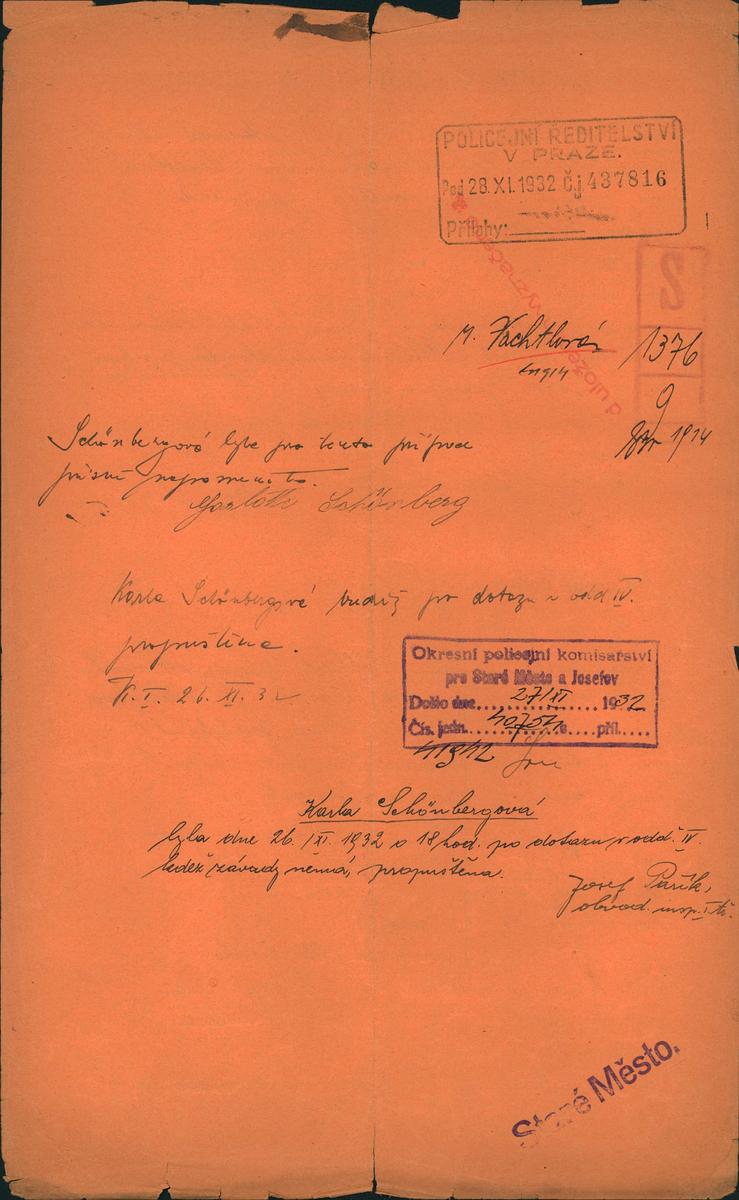 POLICEJNÍ ŘEDITELSTVÍ
V PRAZE.
Pod 28.XI.1932 Č.j 437816
Přílohy:
S
M. Vachtlová 1376
9
1914
Schönbergová byla pro tento případ
přísně napomenuta.
Schönberg
Karla Schönbergová budiž po dotazu v odd IV.
propuštěna.
26. XI. 32
Okresní policejní komisařství
pro Staré Město a Josefov
Došlo dne 27/XI 1932
Čís. jedn. příl.
41942
Karla Schönbergová
byla dne 26./XI. 1932 o 18 hod. po dotazu v odd. IV.
ledež závady nemá, propuštěna.
Josef Pařík,
obvod. insp. I. tř.
Staré Město.